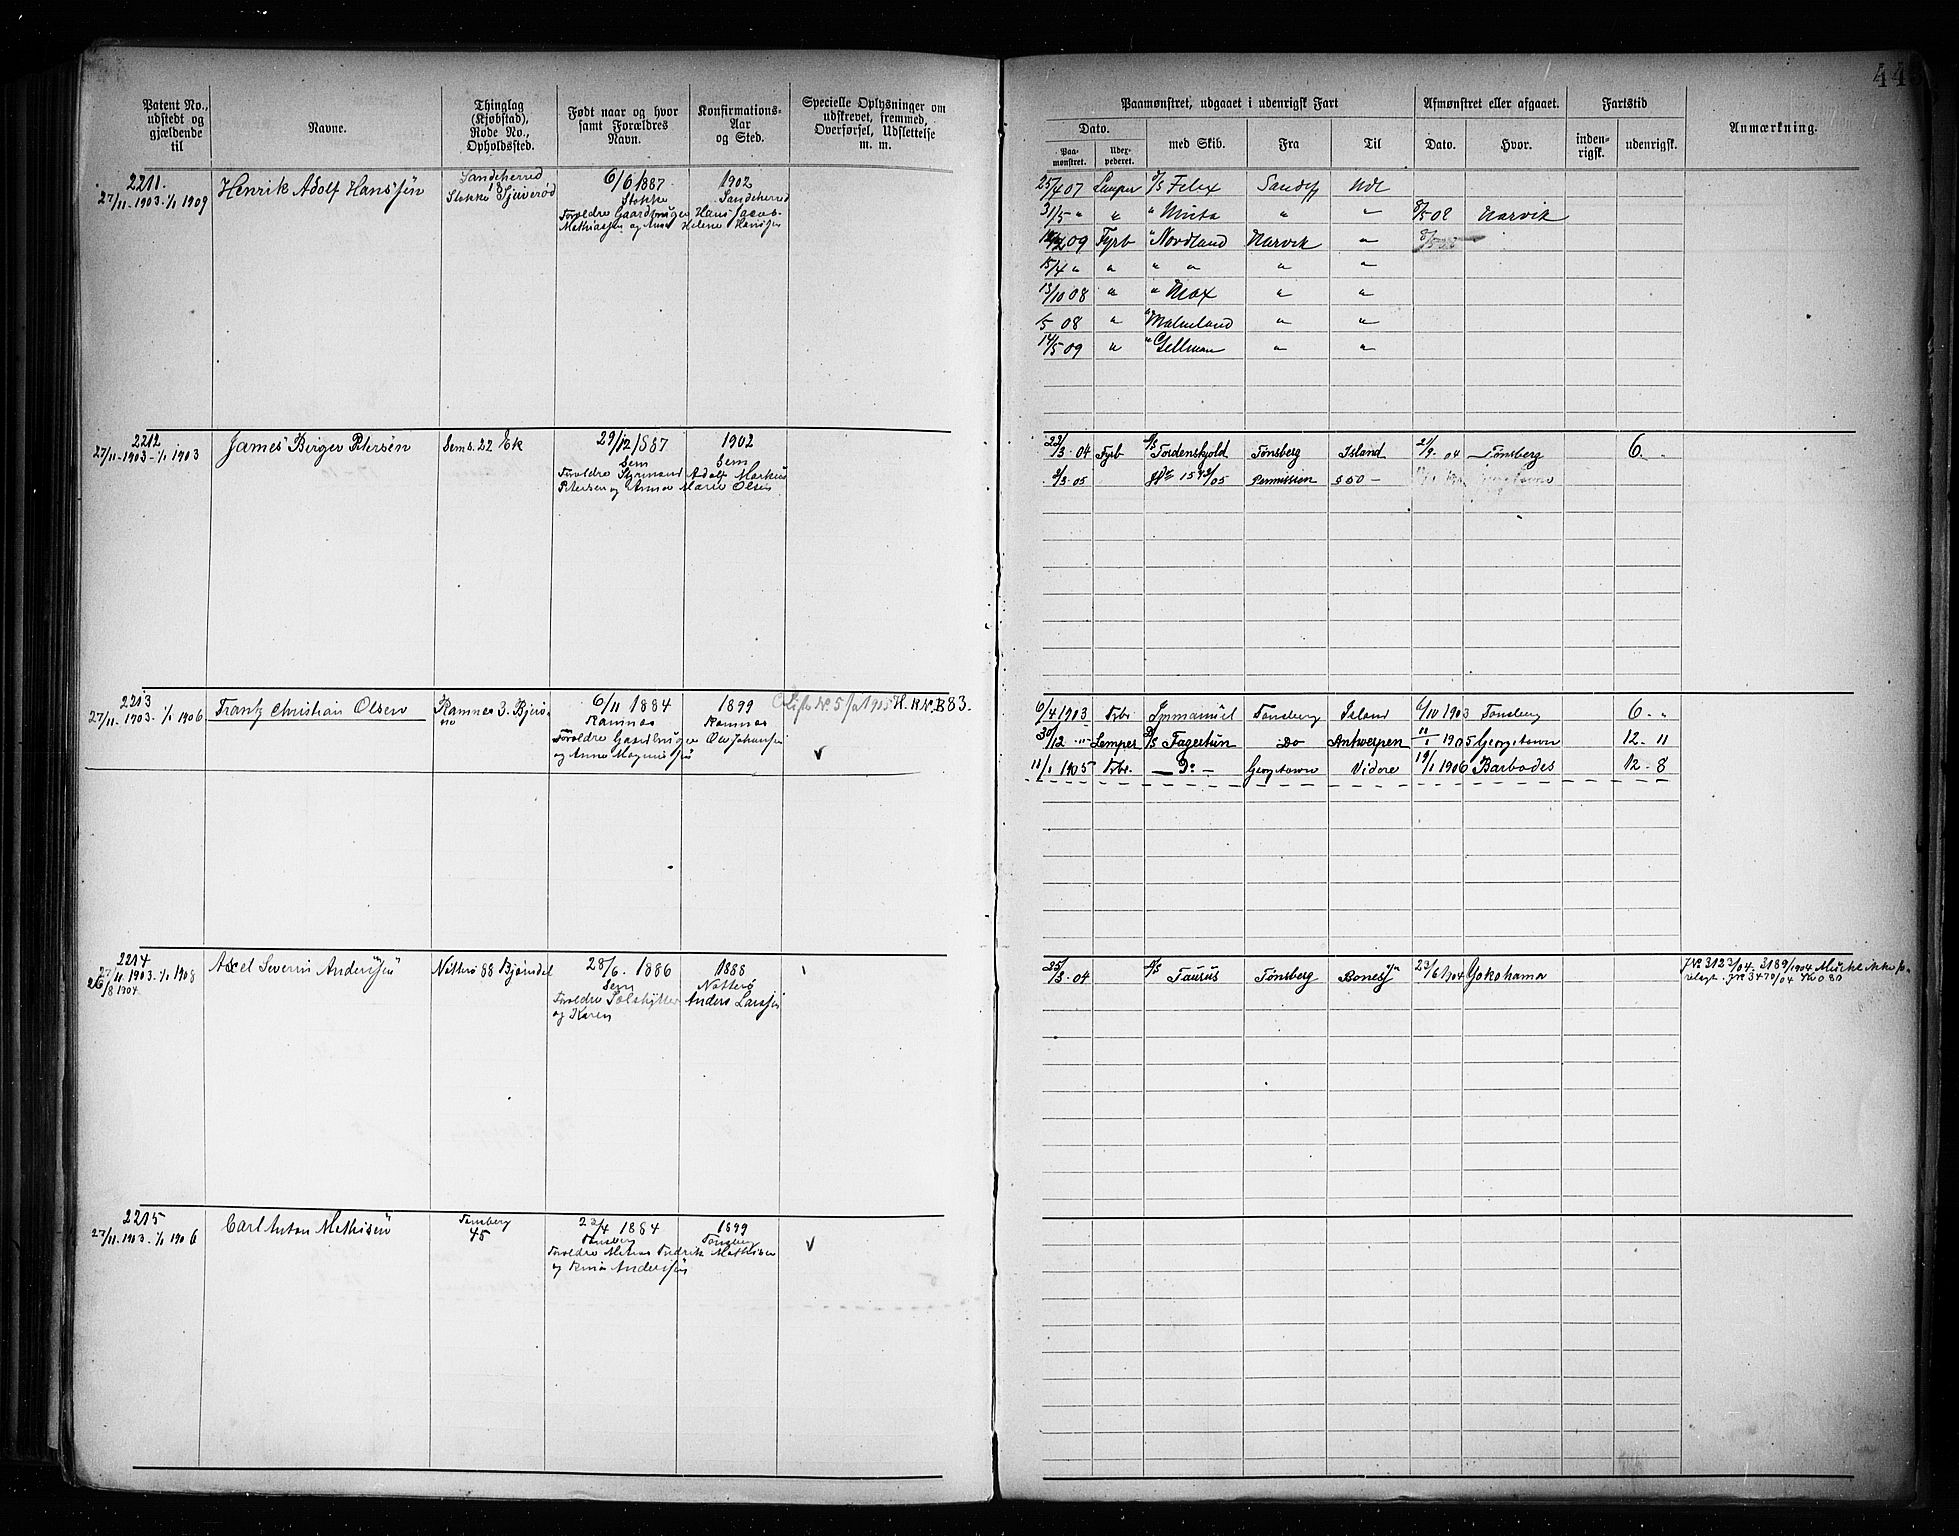 44
Patent No., udstedt og gjældende til
Navne.
Thinglag (Kjøbstad), Rode No., Opholdssted.
Født naar og hvor samt Forældres Navn.
Konfirmations-Aar og Sted.
Specielle Oplysninger om udskrevet, fremmed, Overførsel, Udslettelse m. m.
Paamønstret, udgaaet i udenrigsk Fart
Afmønstret eller afgaaet.
Fartstid
Anmærkning.
Dato.
Paa-mønstret.
Udex-pederet.
med Skib.
Fra
Til
Dato.
Hvor.
inden-rigsk.
udenrigsk.
2211.
27/11-1903-1/1 1909
Henrik Adolf Hanssen
Sandeherred
18
Stokke
6/6 1887
Stokke
Forældre Gaardbruger Hans Jacob
Mathiassen og Anne Helene Hansen
1902
Sandeherred
25/4 07 Lemper S/S Felix Sandefj Udl
31/5 " " " Minta " " 8/5 08 Narvik
09 Fyrb " Nordland Narvik "
15/4 " " " " " "
13/10 08 " " Max " "
5 08 " " Malmland " "
14/5 09 " " Gellivara " "
2212
27/11-1903-1/1 1903
James Birger Petersen
Sem s. 22 Ek
29/12 1887
Sem
Forældre Styrmand Adolf Markus
Petersen og Anna Marie Olsen
1902
Sem
23/3 04 Fyrb S/S Tordenskjold Tønsberg Island 21/9 04 Tønsberg 6. "
2/3 05 Permission 550 —
2213
27/11-1903-1/1 1906
Frantz Christian Olsen
Ramnes 3.
6/11 1884
Ramnes
Forældre Gaardbruger Ole Johansen
og Anne Magnussen
1899
Ramnes
1905 H. R. Nr. B 83.
6/4 1903 Fyrb. Immanuel Tønsberg Island 6/10 1903 Tønsberg 6. "
30/12 " Lemper S/S Fagertun Do Antwerpen 11/1 1905 Georgetown 12. 11
11/1 1905 Fyrb. — Do — Georgetown Videre 19/1 1906 Barbados 12. 8
2214
27/11 1903-1/1 1908
26/8 1904
Axel Severin Andersen
Nøtterø 88 Bjørndal
28/6. 1886
Sem
Forældre Anders Larssen
og Karen
1888
Nøtterø
25/3 04 S/S Taurus Tønsberg 23/6 1904 Yokohama
2215
27/11-1903-1/1 1906
Carl Anton Mathisen
Tønsberg
45
23/4 1884
Tønsberg
Forældre Matros Fredrik Mathisen
og Andersen
1899
Tønsberg